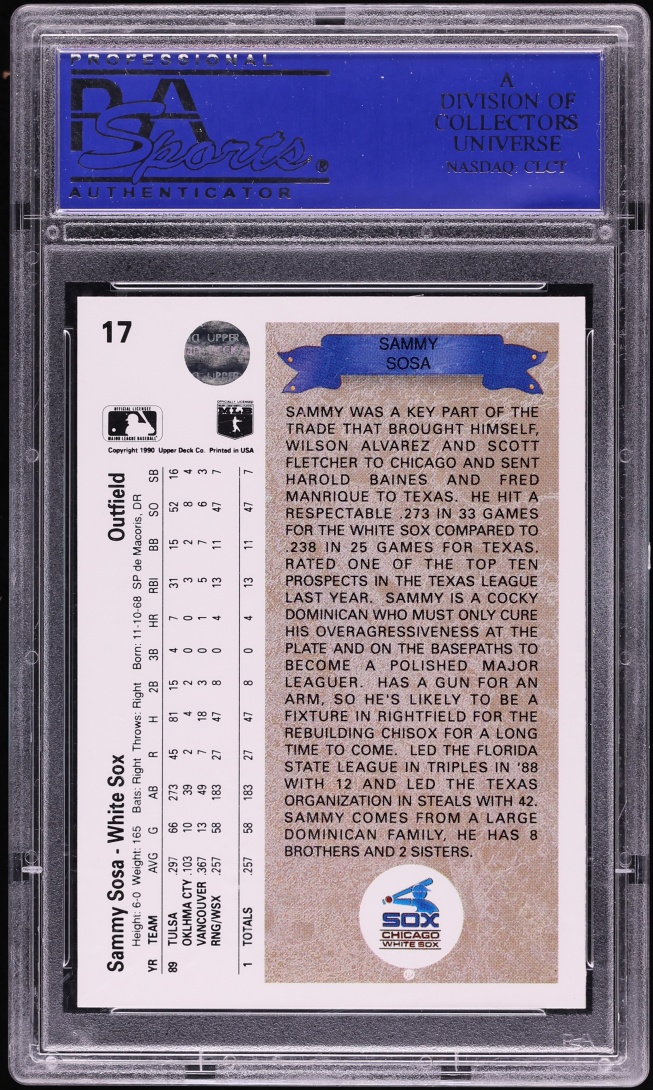 PROFESSIONAL
PSA
Sports®
AUTHENTICATOR
A
DIVISION OF
COLLECTORS
UNIVERSE
NASDAQ: CLCT
17
UPPER
UPPER
OFFICIAL LICENSEE
MAJOR LEAGUE BASEBALL
Copyright 1990 Upper Deck Co. Printed in USA
Sammy Sosa - White Sox Outfield
Height: 6-0 Weight: 165 Bats: Right Throws: Right Born: 11-10-68 SP de Macoris, DR
YR TEAM AVG G AB R H 2B 3B HR RBI BB SO SB
89 TULSA .297 66 273 45 81 15 4 7 31 15 52 16
OKLHMA CTY .103 10 39 2 4 2 0 0 3 2 8 4
VANCOUVER .367 13 49 7 18 3 0 1 5 7 6 3
RNG/WSX .257 58 183 27 47 8 0 4 13 11 47 7
1 TOTALS .257 58 183 27 47 8 0 4 13 11 47 7
SAMMY
SOSA
SAMMY WAS A KEY PART OF THE
TRADE THAT BROUGHT HIMSELF,
WILSON ALVAREZ AND SCOTT
FLETCHER TO CHICAGO AND SENT
HAROLD BAINES AND FRED
MANRIQUE TO TEXAS. HE HIT A
RESPECTABLE .273 IN 33 GAMES
FOR THE WHITE SOX COMPARED TO
.238 IN 25 GAMES FOR TEXAS.
RATED ONE OF THE TOP TEN
PROSPECTS IN THE TEXAS LEAGUE
LAST YEAR. SAMMY IS A COCKY
DOMINICAN WHO MUST ONLY CURE
HIS OVERAGRESSIVENESS AT THE
PLATE AND ON THE BASEPATHS TO
BECOME A POLISHED MAJOR
LEAGUER. HAS A GUN FOR AN
ARM, SO HE'S LIKELY TO BE A
FIXTURE IN RIGHTFIELD FOR THE
REBUILDING CHISOX FOR A LONG
TIME TO COME. LED THE FLORIDA
STATE LEAGUE IN TRIPLES IN '88
WITH 12 AND LED THE TEXAS
ORGANIZATION IN STEALS WITH 42.
SAMMY COMES FROM A LARGE
DOMINICAN FAMILY, HE HAS 8
BROTHERS AND 2 SISTERS.
SOX
CHICAGO
WHITE SOX
®
PSA